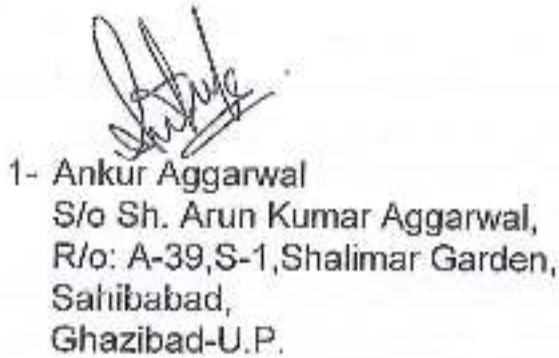 1- Ankur Aggarwal
S/o Sh. Arun Kumar Aggarwal,
R/o: A-39,S-1,Shalimar Garden,
Sahibabad,
Ghazibad-U.P.